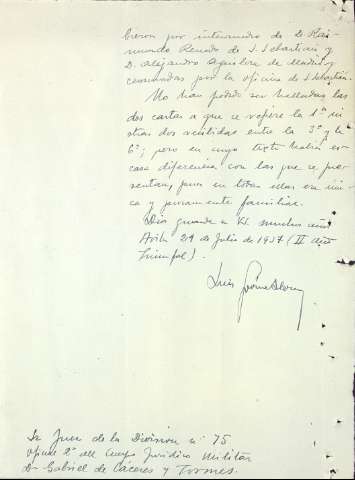 bieron por intermedio de D. Rai-
mundo Renado de S. Sebastián y
D. Alejandro Aguilera de Madrid y
censuradas por la oficina de S. Sebastián.
No han podido ser halladas las
dos cartas a que se refiere la 1ª ni
otras dos recibidas entre la 3ª y la
6ª; pero en cuyo texto había es-
casa diferencia con las que se pre-
sentan, pues en todas ellas era úni-
ca y puramente familiar.
Dios guarde a VS. muchos años
Avila 29 de Julio de 1937 (II Año
Triunfal).
Luis
Sr. Juez de la Division nº 75
Oficial 2º del Cuerpo Juridico Militar
Dn Gabriel de Cáceres y Torres.